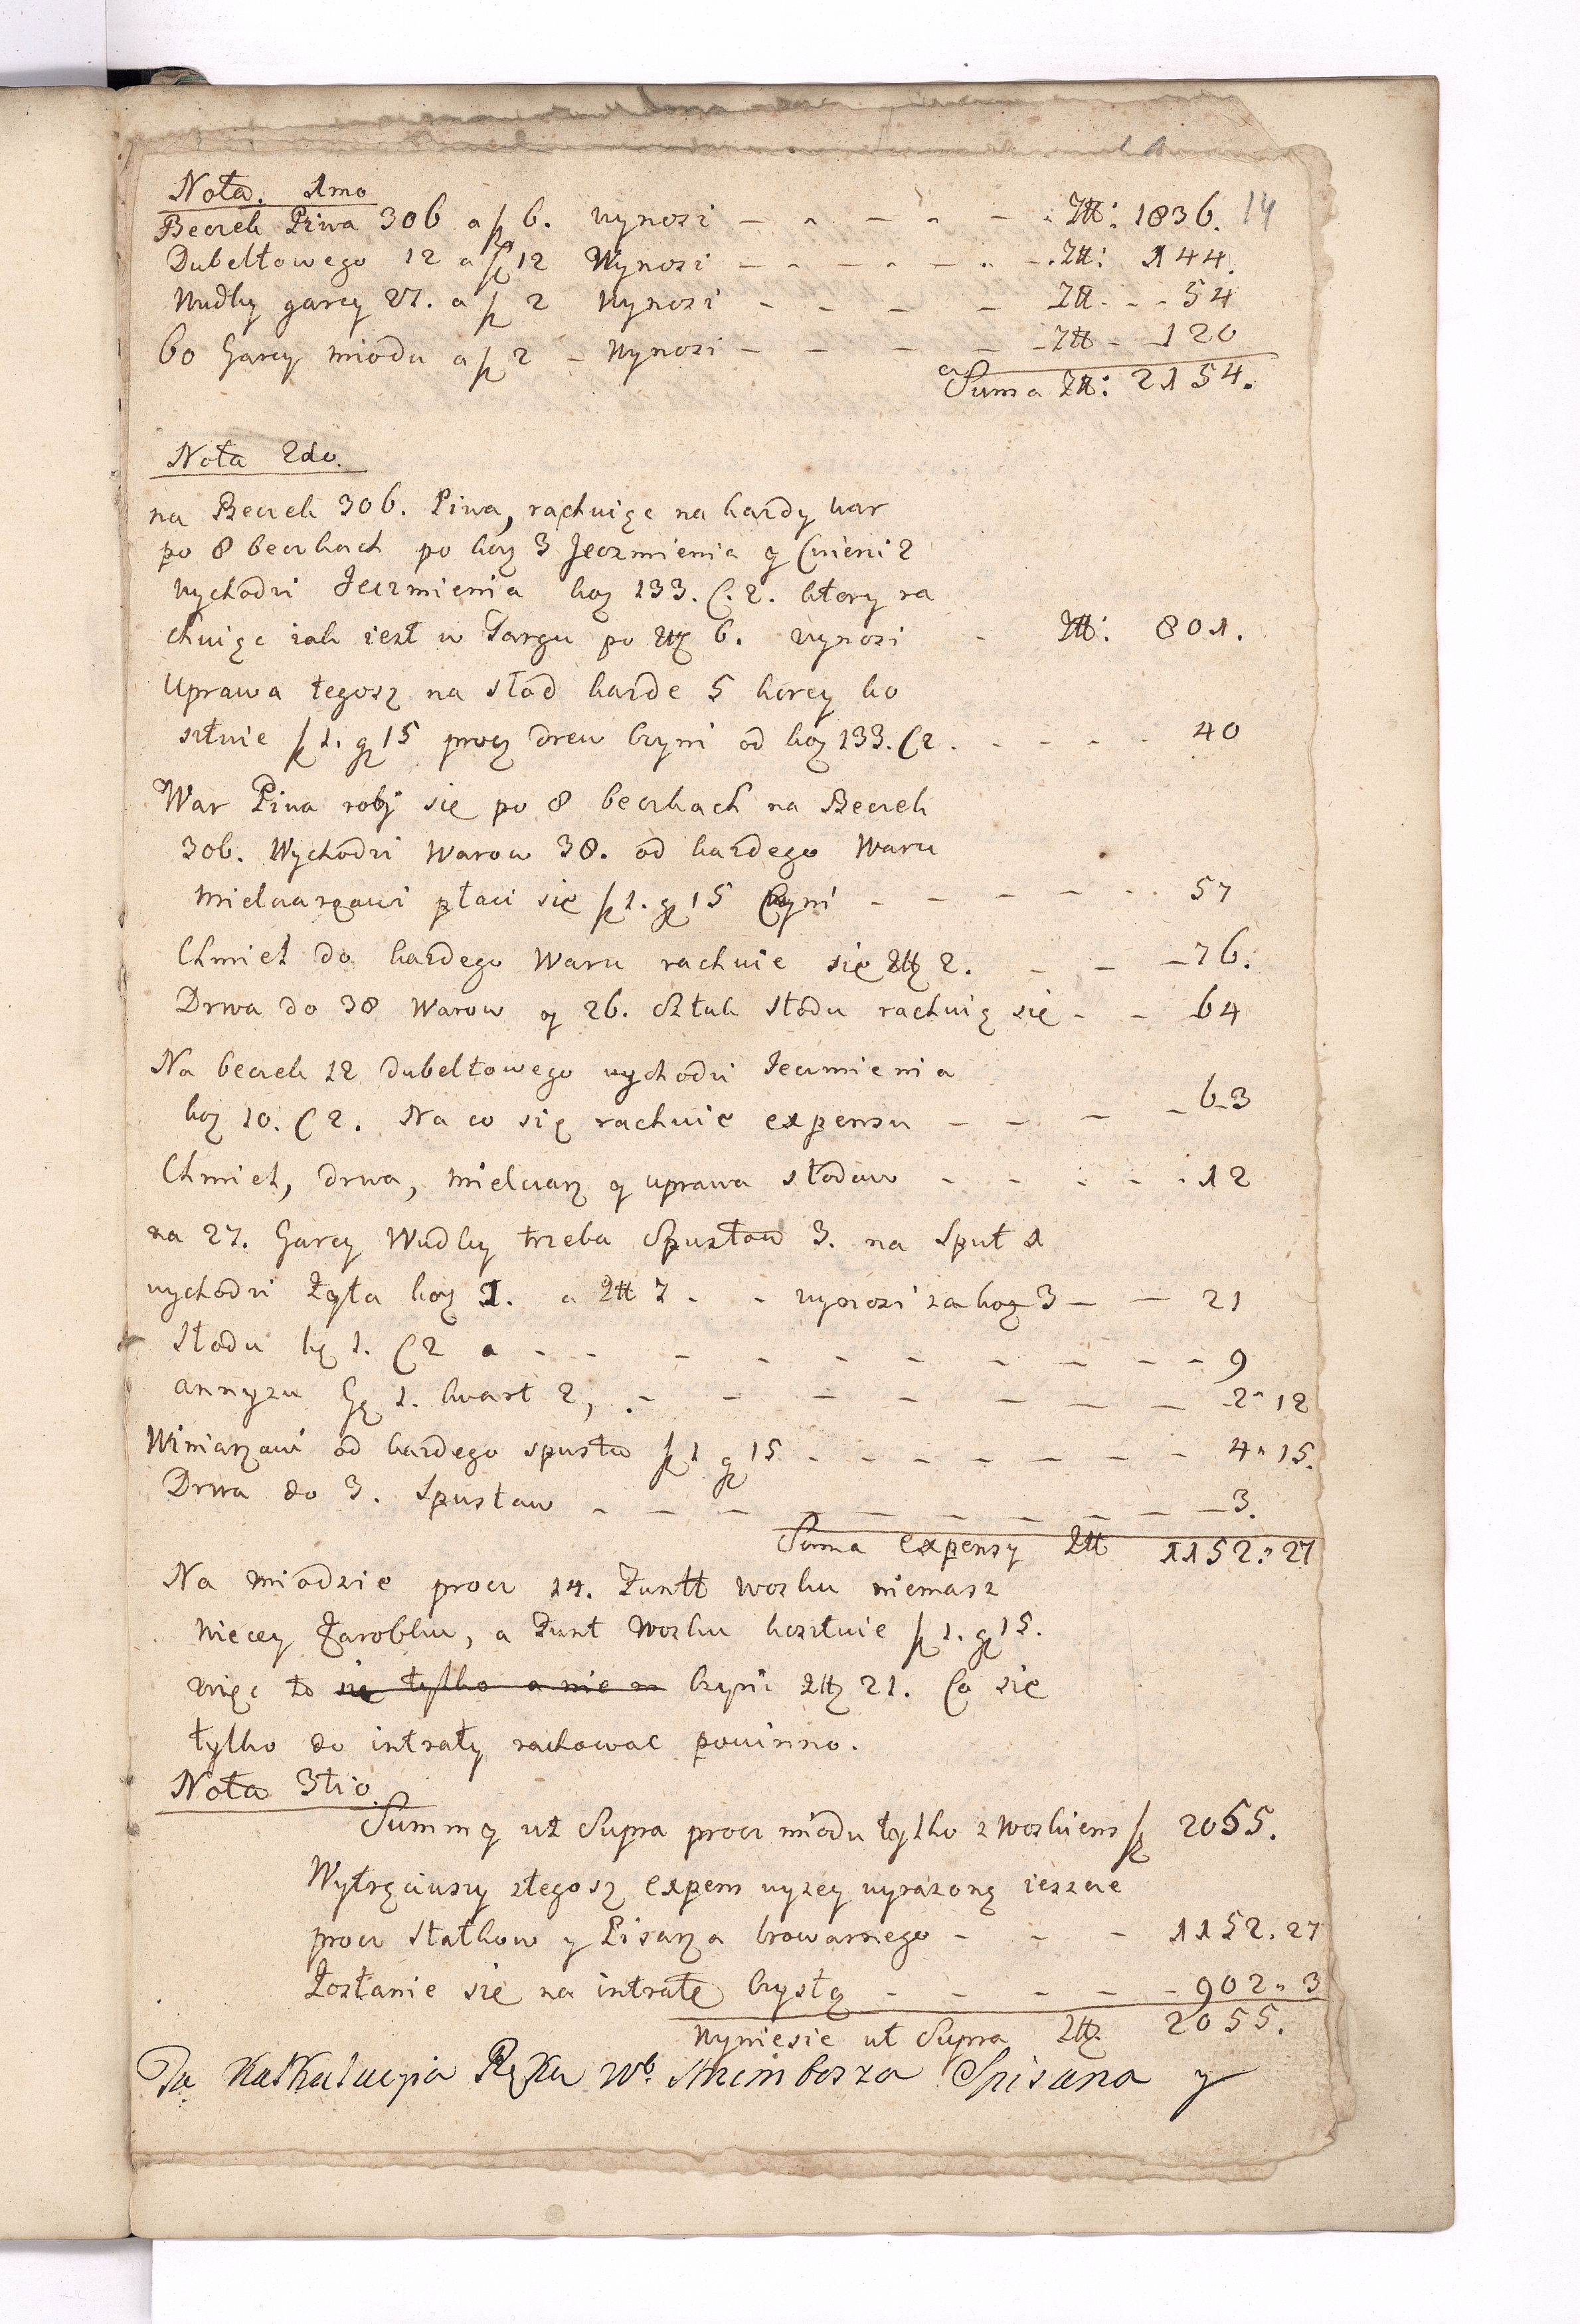 14
Nota. 1mo
Beczek Piwa 306 a zł 6. wynosi - - - - - Złł: 1836.
Dubeltowego 12 a zł 12 Wynosi - - - - - Złł: 144.
Wudky garcy 27. a zł 2 Wynosi - - - - Złł - - 54
60 Garcy miodu a zł 2 - Wynosi - - - - Złł - 120
Suma Złł: 2154.
Nota 2do.
na Beczek 306. Piwa, rachuięc na kazdy war
po 8 beczkach po korz 3 Jeczmienia y Cwierci 2
wychodzi Jeczmienia korz 133. C. 2. ktory ra
chuięc iak iest w Targu po Złł 6. wynosi - Złł: 801.
Uprawa tegosz na słod kazde 5 korcy ko
sztuie zł 1. gr 15 procz drew czyni od korz 133. C 2. - - - - 40
War Piwa robj się po 8 beczkach na Beczek
306. Wychodzi Warow 38. od kazdego Waru
Mielcarzowi płaci się zł 1. gr 15 Czyni - - - - - 57
Chmiel do kazdego Waru rachuie się Złł 2. - - - 76.
Drwa do 38 Warow y 26. Sztuk słodu rachuią się - - 64
Na beczek 12 dubeltowego wychodzi Jeczmienia
korz 10. C 2. Na co się rachuie expensu - - - - 63
Chmiel, drwa, mielcarz y uprawa słodow - - - - 12
na 27. Garcy Wudky trzeba Spustow 3. na Sput 1
wychodzi Zyta korz 1. a Złł 7 - - wynosi za korz 3 - - 21
słodu kor 1. C 2 a - - - - - - - - - 9
annyzu Gar 1. kwart 2, - - - - - - - 2 " 12
Winiarzowi od kazdego spustu zł 1 gr 15 - - - - - - 4 " 15.
Drwa do 3. Spustow - - - - - - - - - 3.
Suma expensy Złł 1152. " 27
Na miodzie procz 14. Funtt wosku niemasz
wiecey Zarobku, a Funt Wosku kosztuie zł 1. gr 15.
więc to się tylko a nie m czyni Złł 21. Co się
tylko do intraty rachowac powinno.
Nota 3tio.
Summy ut Supra procz miodu tylko z woskiem zł 2055.
Wytrąciwszy ztegosz expens wyzey wyrazoną ieszcze
procz statkow y Pisarza browarnego - - - 1152. 27
Zostanie się na intratę czystą - - - - - 902 " 3
Wyniesie ut Supra Złł. 2055.
Ta Kalkulacyia Ręką Wo. Spisana y